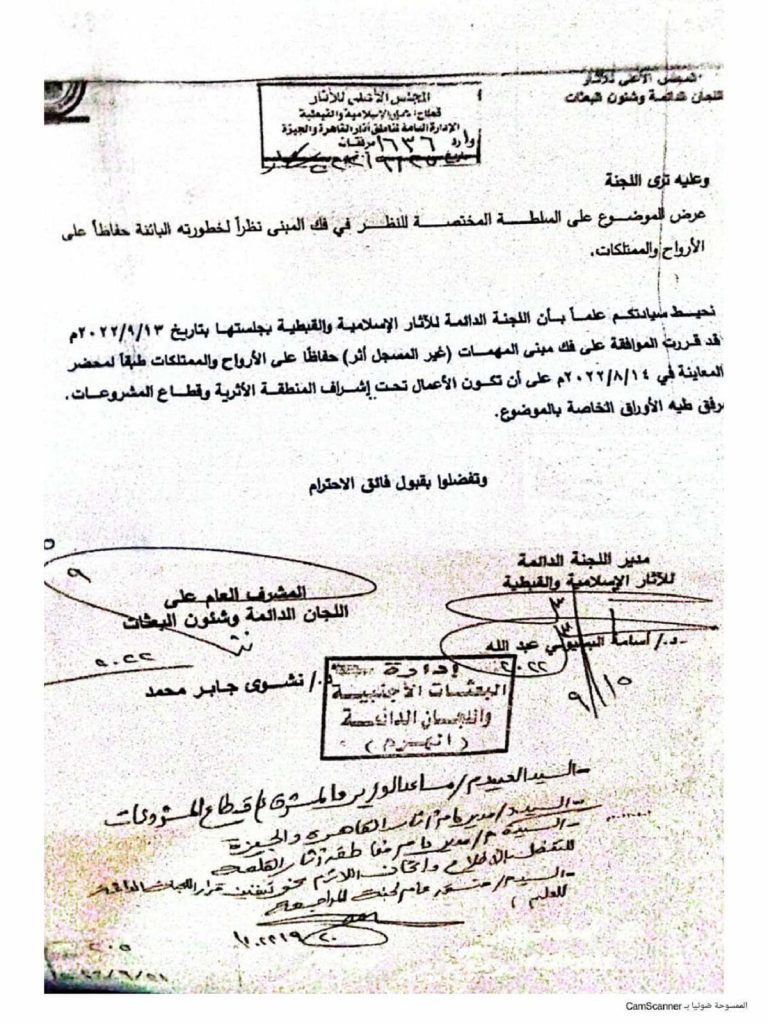 المجلس الأعلى للآثار
اللجان الدائمة وشئون البعثات
المجلس الأعلى للآثار
قطاع الآثار الإسلامية والقبطية
الإدارة العامة لمناطق آثار القاهرة والجيزة
وارد ١٦٣٦ مرفقات
وعليه ترى اللجنة
عرض الموضوع على السلطة المختصة للنظر في فك المبنى نظراً لخطورته البائنة حفاظاً على
الأرواح والممتلكات.
نحيط سيادتكم علماً بأن اللجنة الدائمة للآثار الإسلامية والقبطية بجلستها بتاريخ ٢٠٢٢/٩/١٣م
قد قررت الموافقة على فك مبنى المهمات (غير المسجل أثر) حفاظاً على الأرواح والممتلكات طبقاً لمحضر
المعاينة في ٢٠٢٢/٨/١٤م على أن تكون الأعمال تحت إشراف المنطقة الأثرية وقطاع المشروعات.
مرفق طيه الأوراق الخاصة بالموضوع.
وتفضلوا بقبول فائق الاحترام
مدير اللجنة الدائمة
للآثار الإسلامية والقبطية
د./ أسامة البسيوني عبد الله
٢٠٢٢
٩/١٥
المشرف العام على
اللجان الدائمة وشئون البعثات
٢٠٢٢
د./ نشوى جابر محمد
إدارة
البعثات الأجنبية
واللجان الدائمة
(الهرم)
- السيد العميد م/ مساعد الوزير والمشرف ع قطاع المشروعات
- السيد/ مدير عام آثار القاهرة والجيزة
- السيد م/ مدير عام منطقة آثار القلعة
للتفضل بالاطلاع واتخاذ اللازم نحو تنفيذ قرار اللجنة الدائمة
للعلم)
الممسوحة ضوئيا بـ CamScanner